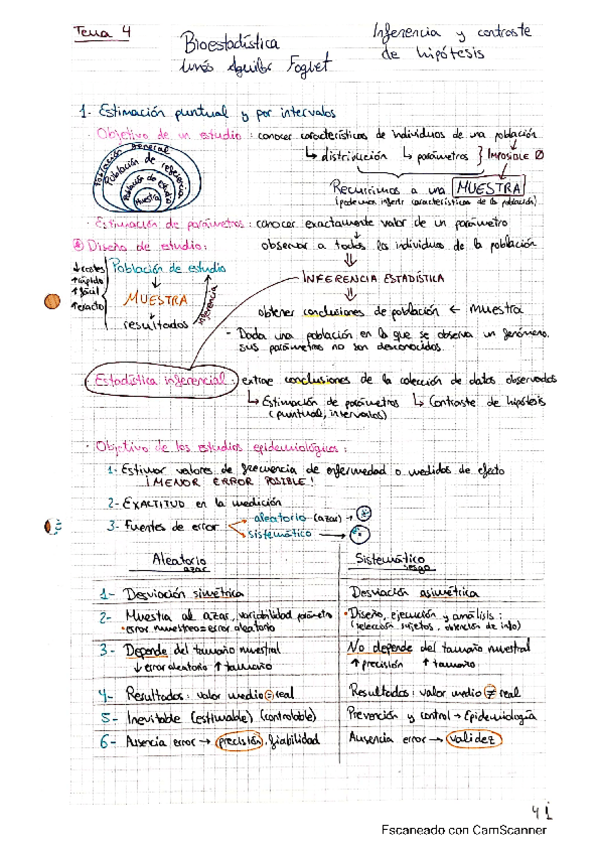 Tema 4
Bioestadística
Inés Aguilar Foguet
Inferencia y contraste
de hipótesis
1- Estimación puntual y por intervalos
· Objetivo de un estudio: conocer características de individuos de una población
↳ distribución ↳ parámetros } IMPOSIBLE
Población general
Población de referencia
Población de estudio
Muestra
Recurrimos a una MUESTRA
(podemos inferir características de la población)
· Estimación de parámetros: conocer exactamente valor de un parámetro
Diseño de estudio:
observar a todos los individuos de la población
↓ costes
↑ rápido
↑ fácil
Población de estudio
MUESTRA
resultados
inferencia
INFERENCIA ESTADÍSTICA
obtener conclusiones de población ← muestra
- Dada una población en la que se observa un fenómeno,
sus parámetros no son desconocidos.
· Estadística inferencial: extrae conclusiones de la colección de datos observados
↳ Estimación de parámetros ↳ Contraste de hipótesis
(puntual, intervalos)
· Objetivo de los estudios epidemiológicos:
1- Estimar valores de frecuencia de enfermedad o medidas de efecto
¡MENOR ERROR POSIBLE!
2- EXACTITUD en la medición
3- Fuentes de error
aleatorio (azar) →
sistemático →
Aleatorio
azar
Sistemático
sesgo
1- Desviación simétrica
Desviación asimétrica
2- Muestra al azar, variabilidad parámetro
· error muestreo = error aleatorio
· Diseño, ejecución y análisis:
(selección sujetos, obtención de info)
3- Depende del tamaño muestral
↓ error aleatorio ↑ tamaño
No depende del tamaño muestral
↑ precisión ↑ tamaño
4- Resultados: valor medio = real
Resultados: valor medio ≠ real
5- Inevitable (estimable) (controlable)
Prevención y control → Epidemiología
6- Ausencia error → precisión, fiabilidad
Ausencia error → validez
Escaneado con CamScanner